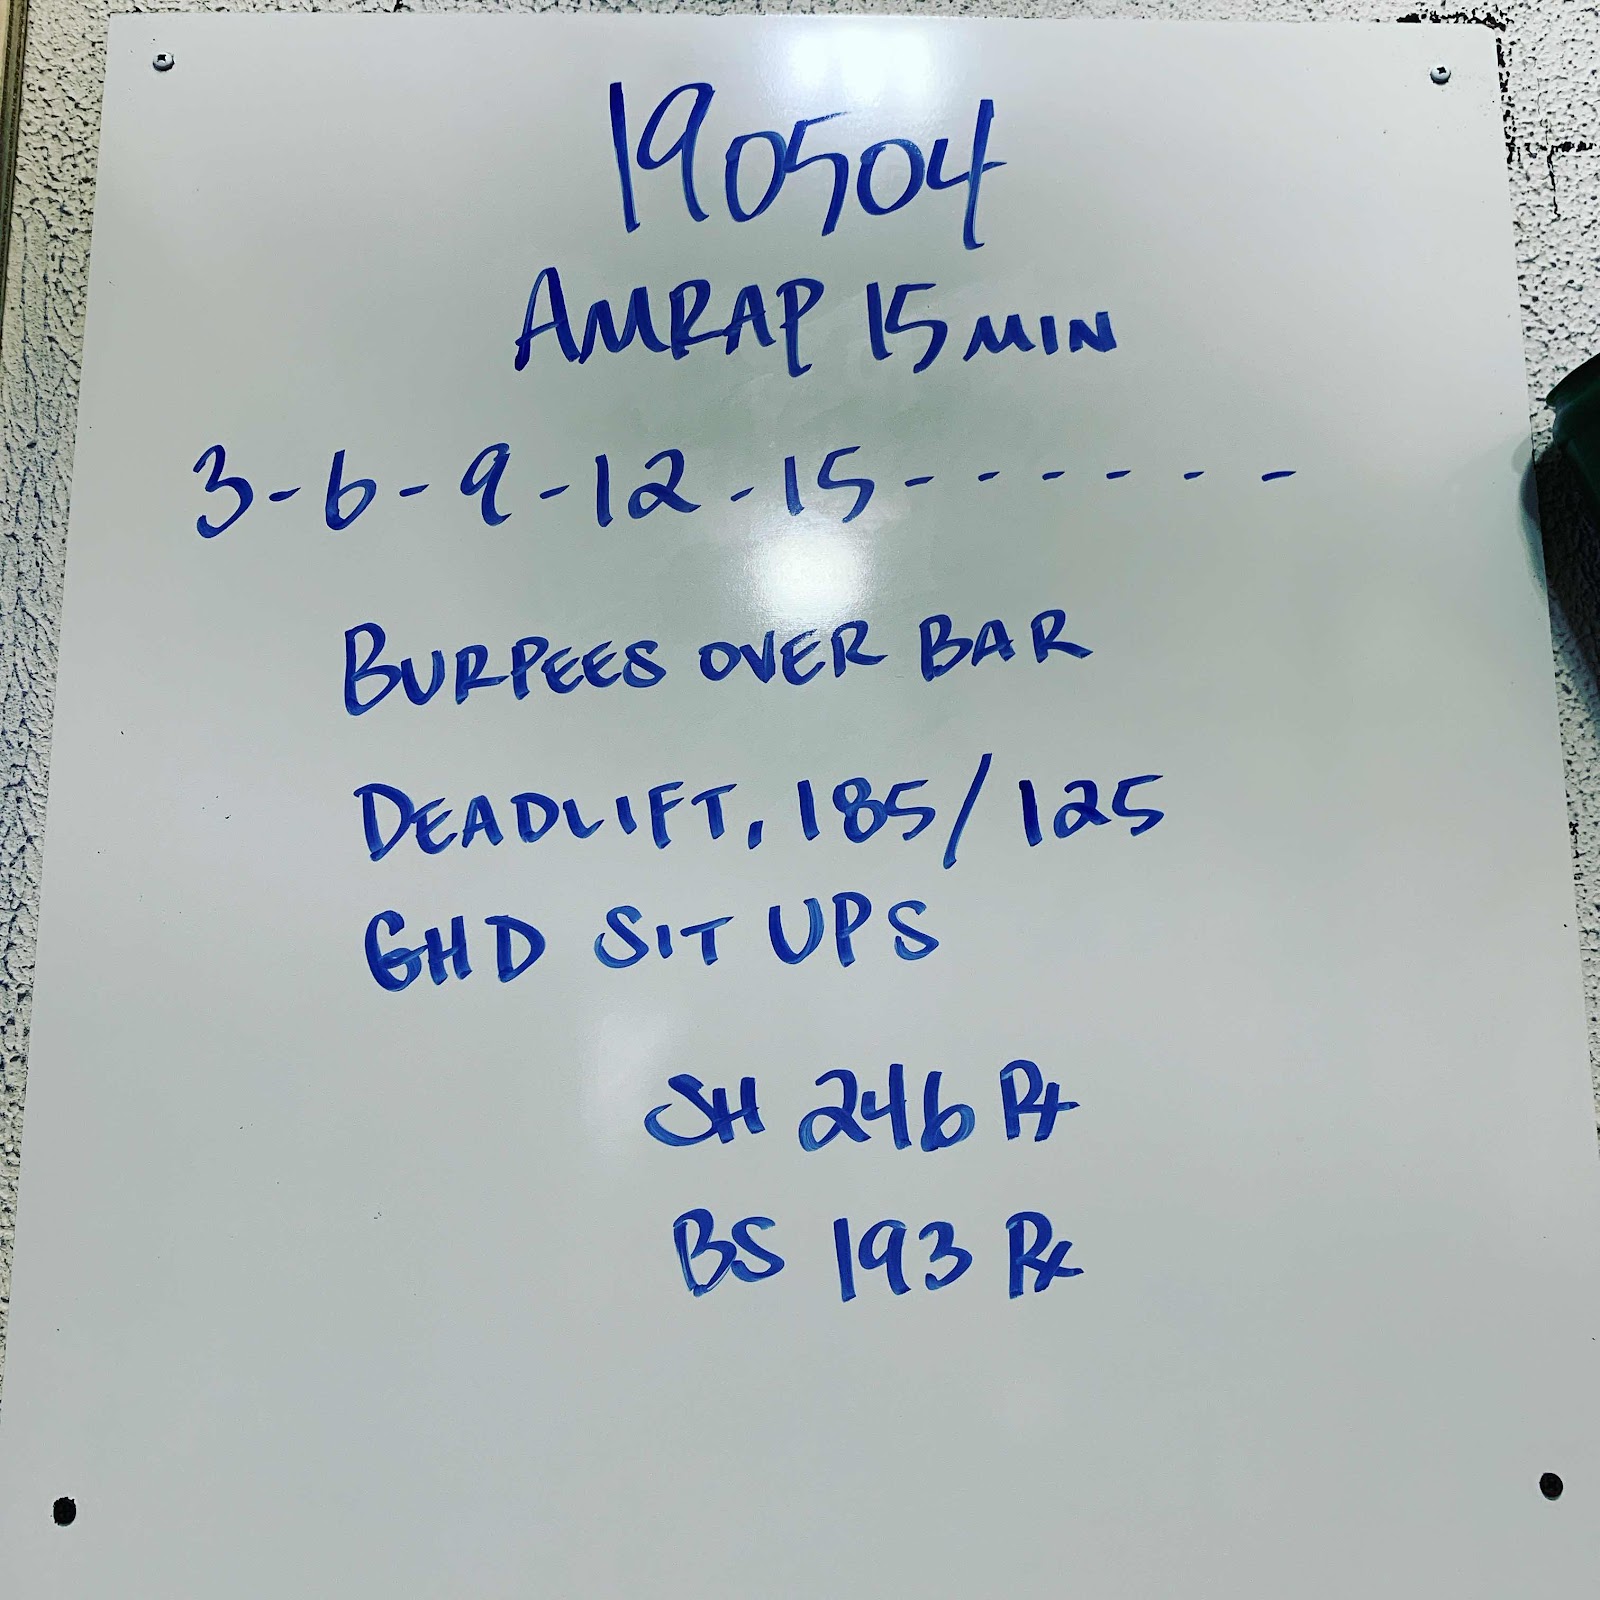 190504
AMRAP 15 MIN
3-6-9-12-15- - - - - - -
BURPEES OVER BAR
DEADLIFT, 185/125
GHD SIT UPS
SH 246 Rx
BS 193 Rx